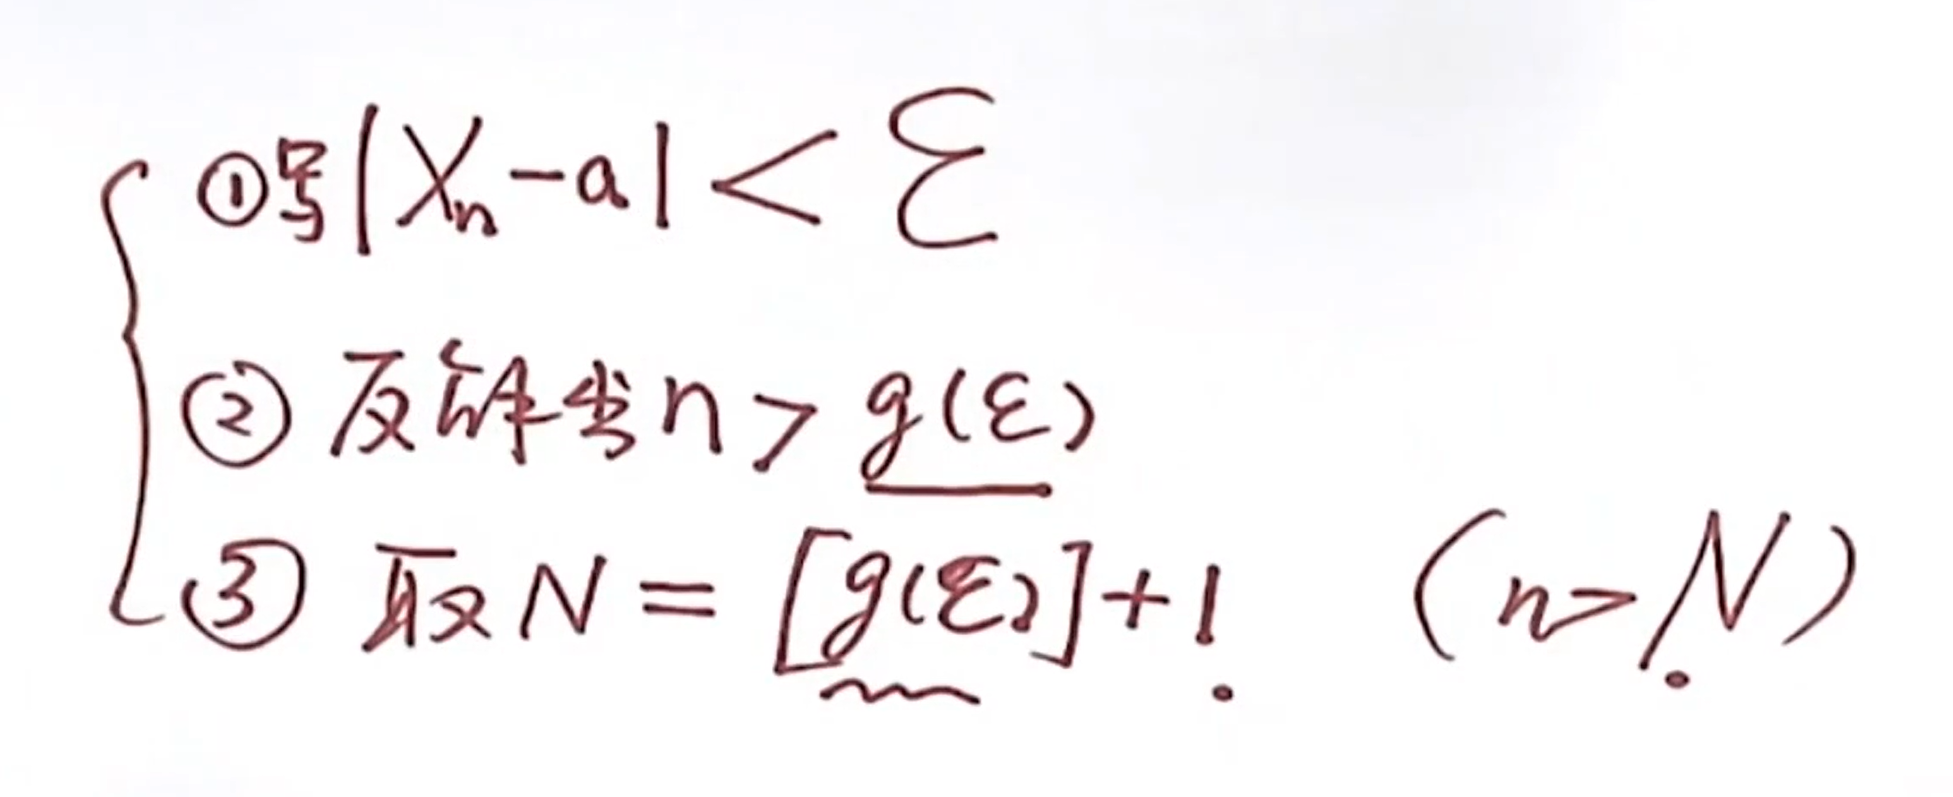 ①写|Xn-a|<ε
②反解出n>g(ε)
③取N=[g(ε)]+1 (n>N)